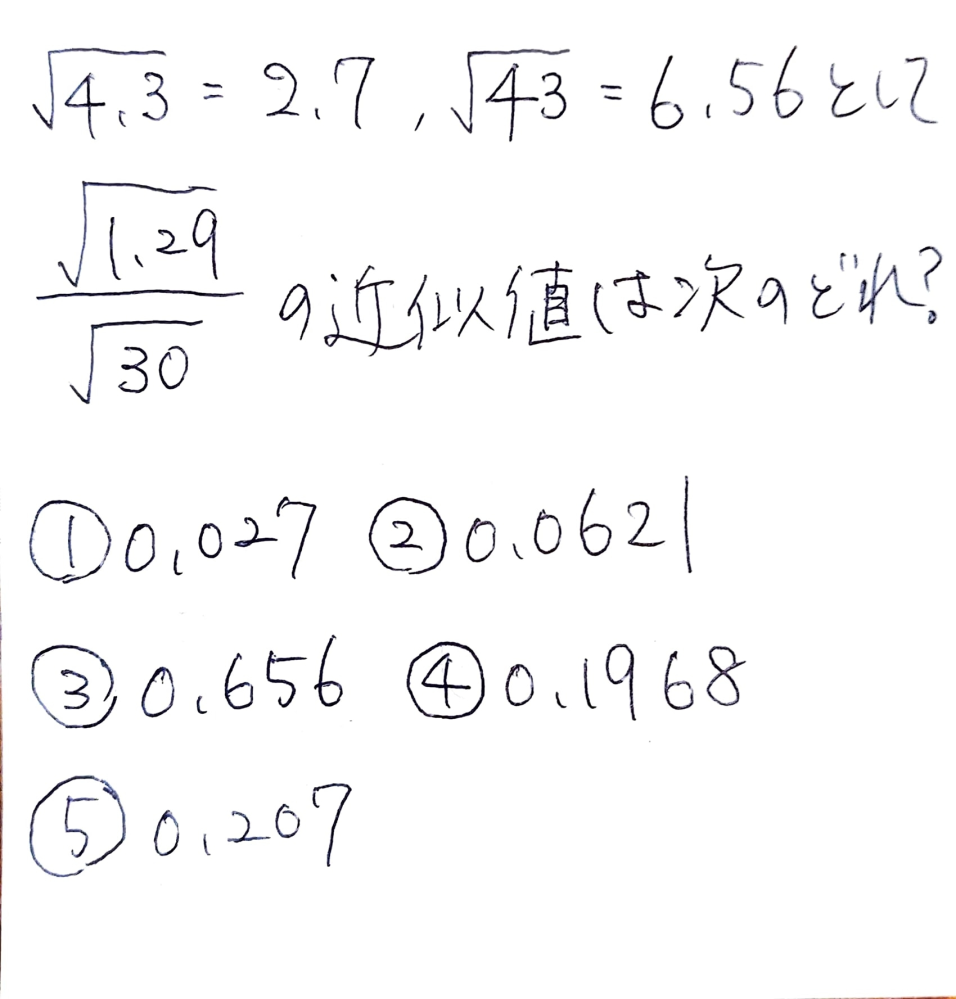 √4.3 = 2.7, √43 = 6.56として
√1.29/√30 の近似値は次のどれ?
①0.027 ②0.0621
③0.656 ④0.1968
⑤0.207